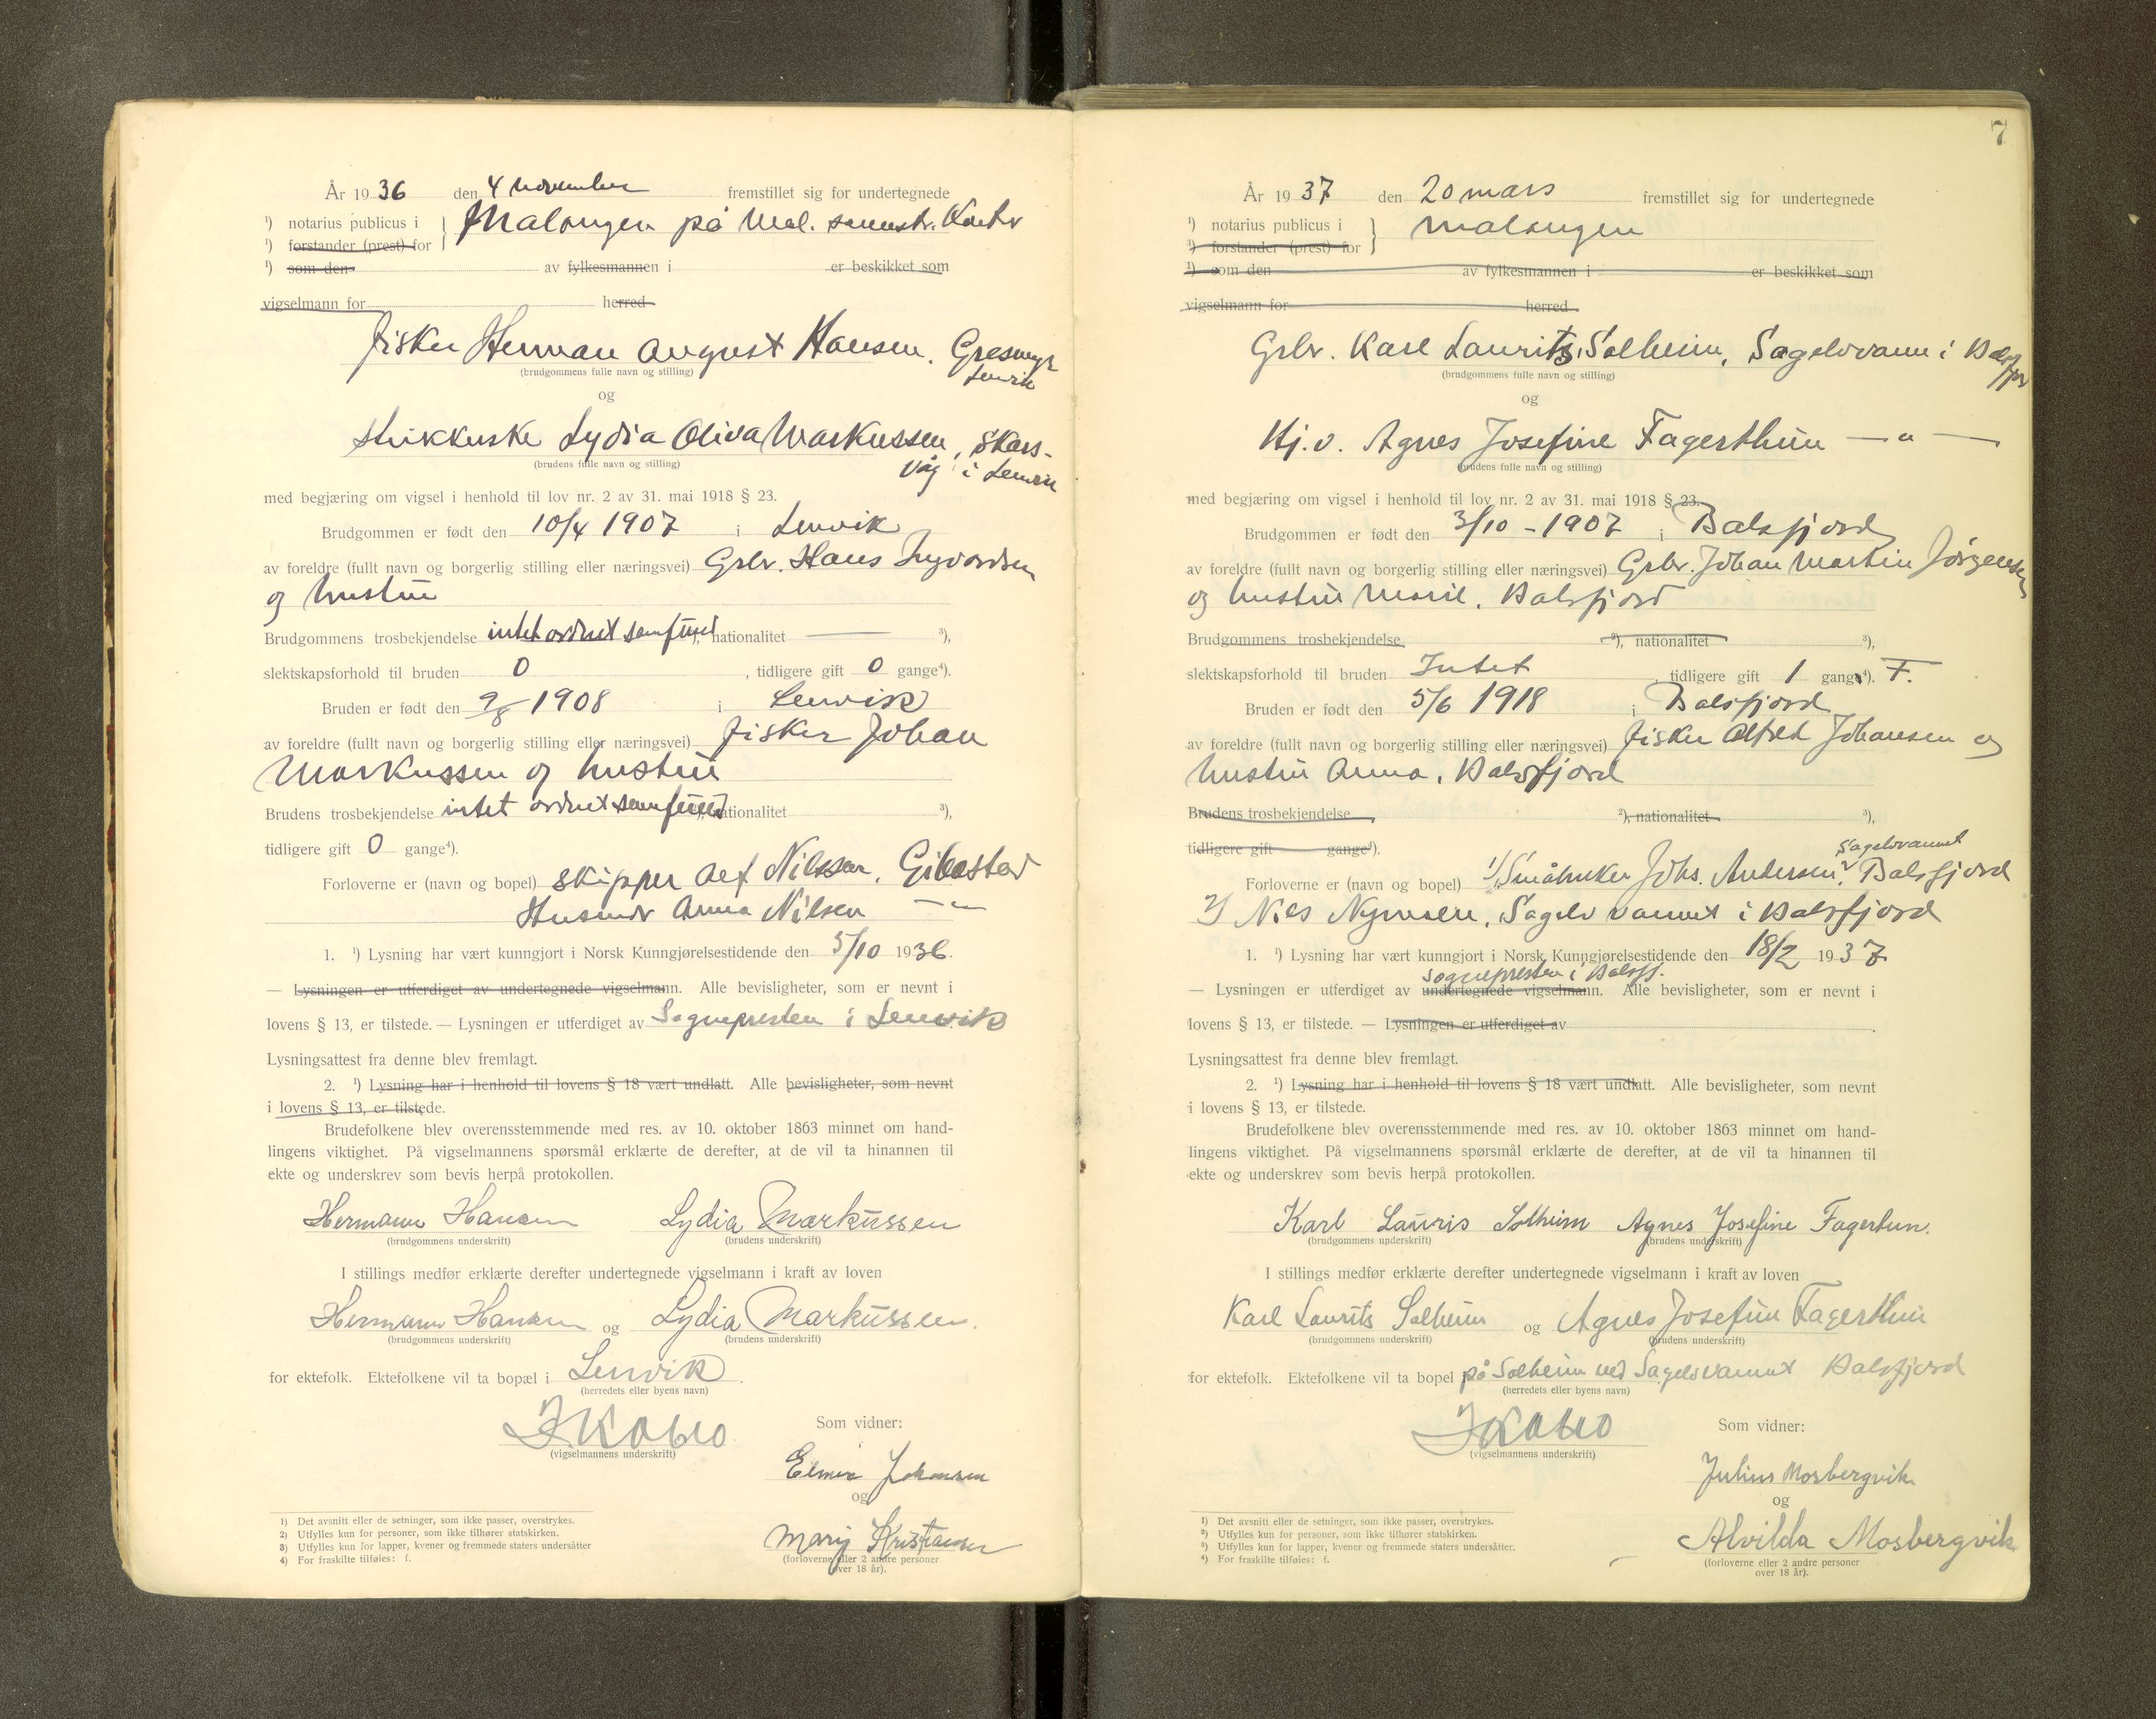 År 1936 den 4 november fremstillet sig for undertegnede
¹) notarius publicus i } Malangen på Mal.
¹) forstander (prest) for
¹) som den av fylkesmannen i er beskikket som
vigselmann for herred
fisker Herman August Hansen, Gresmyr
Lenvik
(brudgommens fulle navn og stilling)
og
Lydia Oliva Markussen, Skars-
våg i Lenvik
(brudens fulle navn og stilling)
med begjæring om vigsel i henhold til lov nr. 2 av 31. mai 1918 § 23.
Brudgommen er født den 10/4 1907 i Lenvik
av foreldre (fullt navn og borgerlig stilling eller næringsvei) Grbr. Hans Ingvardsen
og hustru
Brudgommens trosbekjendelse intet ordnet samfund ²), nationalitet — ³),
slektskapsforhold til bruden 0, tidligere gift 0 gange⁴).
Bruden er født den 9/8 1908 i Lenvik
av foreldre (fullt navn og borgerlig stilling eller næringsvei) fisker Johan
Markussen og hustru
Brudens trosbekjendelse intet ordnet samfund ²), nationalitet ³),
tidligere gift 0 gange⁴).
Forloverne er (navn og bopel) skipper Alf Nilsen, Gibostad
Anna Nilsen — " —
1. ¹) Lysning har vært kunngjort i Norsk Kunngjørelsestidende den 5/10 1936.
— Lysningen er utferdiget av undertegnede vigselmann. Alle bevisligheter, som er nevnt i
lovens § 13, er tilstede. — Lysningen er utferdiget av Sognepresten i Lenvik
Lysningsattest fra denne blev fremlagt.
2. ¹) Lysning har i henhold til lovens § 18 vært undlatt. Alle bevisligheter, som nevnt
i lovens § 13, er tilstede.
Brudefolkene blev overensstemmende med res. av 10. oktober 1863 minnet om hand-
lingens viktighet. På vigselmannens spørsmål erklærte de derefter, at de vil ta hinannen til
ekte og underskrev som bevis herpå protokollen.
Hermann Hansen Lydia Markussen
(brudgommens underskrift) (brudens underskrift)
I stillings medfør erklærte derefter undertegnede vigselmann i kraft av loven
Hermann Hansen og Lydia Markussen.
(brudgommens underskrift) (brudens underskrift)
for ektefolk. Ektefolkene vil ta bopæl i Lenvik.
(herredets eller byens navn)
(vigselmannens underskrift)
Som vidner:
Elmer Johansen
og
Mary Kristiansen
(forloverne eller 2 andre personer
over 18 år).
1) Det avsnitt eller de setninger, som ikke passer, overstrykes.
2) Utfylles kun for personer, som ikke tilhører statskirken.
3) Utfylles kun for lapper, kvener og fremmede staters undersåtter
4) For fraskilte tilføies: f.
7
År 1937 den 20 mars fremstillet sig for undertegnede
¹) notarius publicus i } Malangen
¹) forstander (prest) for
¹) som den av fylkesmannen i er beskikket som
vigselmann for herred
Grbr. Karl Laurits Solheim, Sagelvvann i Balsfjord
(brudgommens fulle navn og stilling)
og
Hj.v. Agnes Josefine Fagerthun — " —
(brudens fulle navn og stilling)
med begjæring om vigsel i henhold til lov nr. 2 av 31. mai 1918 § 23.
Brudgommen er født den 3/10 - 1907 i Balsfjord
av foreldre (fullt navn og borgerlig stilling eller næringsvei) Grbr. Johan Martin Jörgensen
og hustru Marie, Balsfjord
Brudgommens trosbekjendelse ²), nationalitet ³),
slektskapsforhold til bruden Intet, tidligere gift 1 gange⁴). F.
Bruden er født den 5/6 1918 i Balsfjord
av foreldre (fullt navn og borgerlig stilling eller næringsvei) fisker Alfred Johansen og
hustru Anna, Balsfjord
Brudens trosbekjendelse ²), nationalitet ³),
tidligere gift gange⁴).
Sagelvvannet
Forloverne er (navn og bopel) 1/ Småbruker Johs. Andersen, Balsfjord
2/ Nils Sagelvvannet i Balsfjord
1. ¹) Lysning har vært kunngjort i Norsk Kunngjørelsestidende den 18/2 1937
sognepresten i Balsfj.
— Lysningen er utferdiget av undertegnede vigselmann. Alle bevisligheter, som er nevnt i
lovens § 13, er tilstede. — Lysningen er utferdiget av .
Lysningsattest fra denne blev fremlagt.
2. ¹) Lysning har i henhold til lovens § 18 vært undlatt. Alle bevisligheter, som nevnt
i lovens § 13, er tilstede.
Brudefolkene blev overensstemmende med res. av 10. oktober 1863 minnet om hand-
lingens viktighet. På vigselmannens spørsmål erklærte de derefter, at de vil ta hinannen til
ekte og underskrev som bevis herpå protokollen.
Karl Lauris Solheim Agnes Josefine Fagertun.
(brudgommens underskrift) (brudens underskrift)
I stillings medfør erklærte derefter undertegnede vigselmann i kraft av loven
Karl Laurits Solheim og Agnes Josefine Fagerthun
(brudgommens underskrift) (brudens underskrift)
for ektefolk. Ektefolkene vil ta bopel på Solheim ved Sagelvvannet Balsfjord
(herredets eller byens navn)
(vigselmannens underskrift)
Som vidner:
Julius Mosbergvik
og
Alvilda Mosbergvik
(forloverne eller 2 andre personer
over 18 år).
¹) Det avsnitt eller de setninger, som ikke passer, overstrykes.
²) Utfylles kun for personer, som ikke tilhører statskirken.
³) Utfylles kun for lapper, kvener og fremmede staters undersåtter.
⁴) For fraskilte tilføies: f.